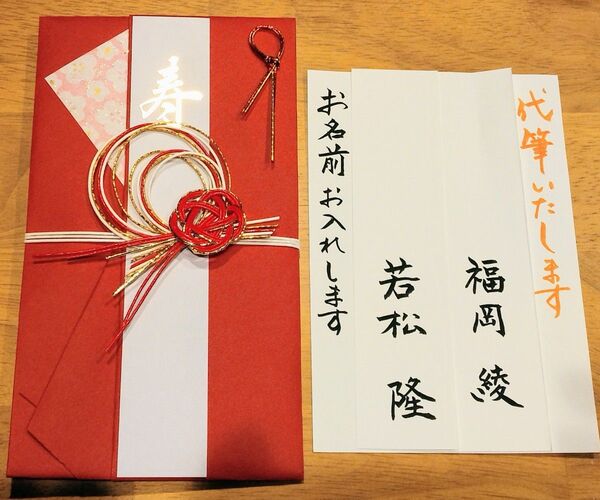 寿
代筆いたします
福岡 綾
若松 隆
お名前 お入れします